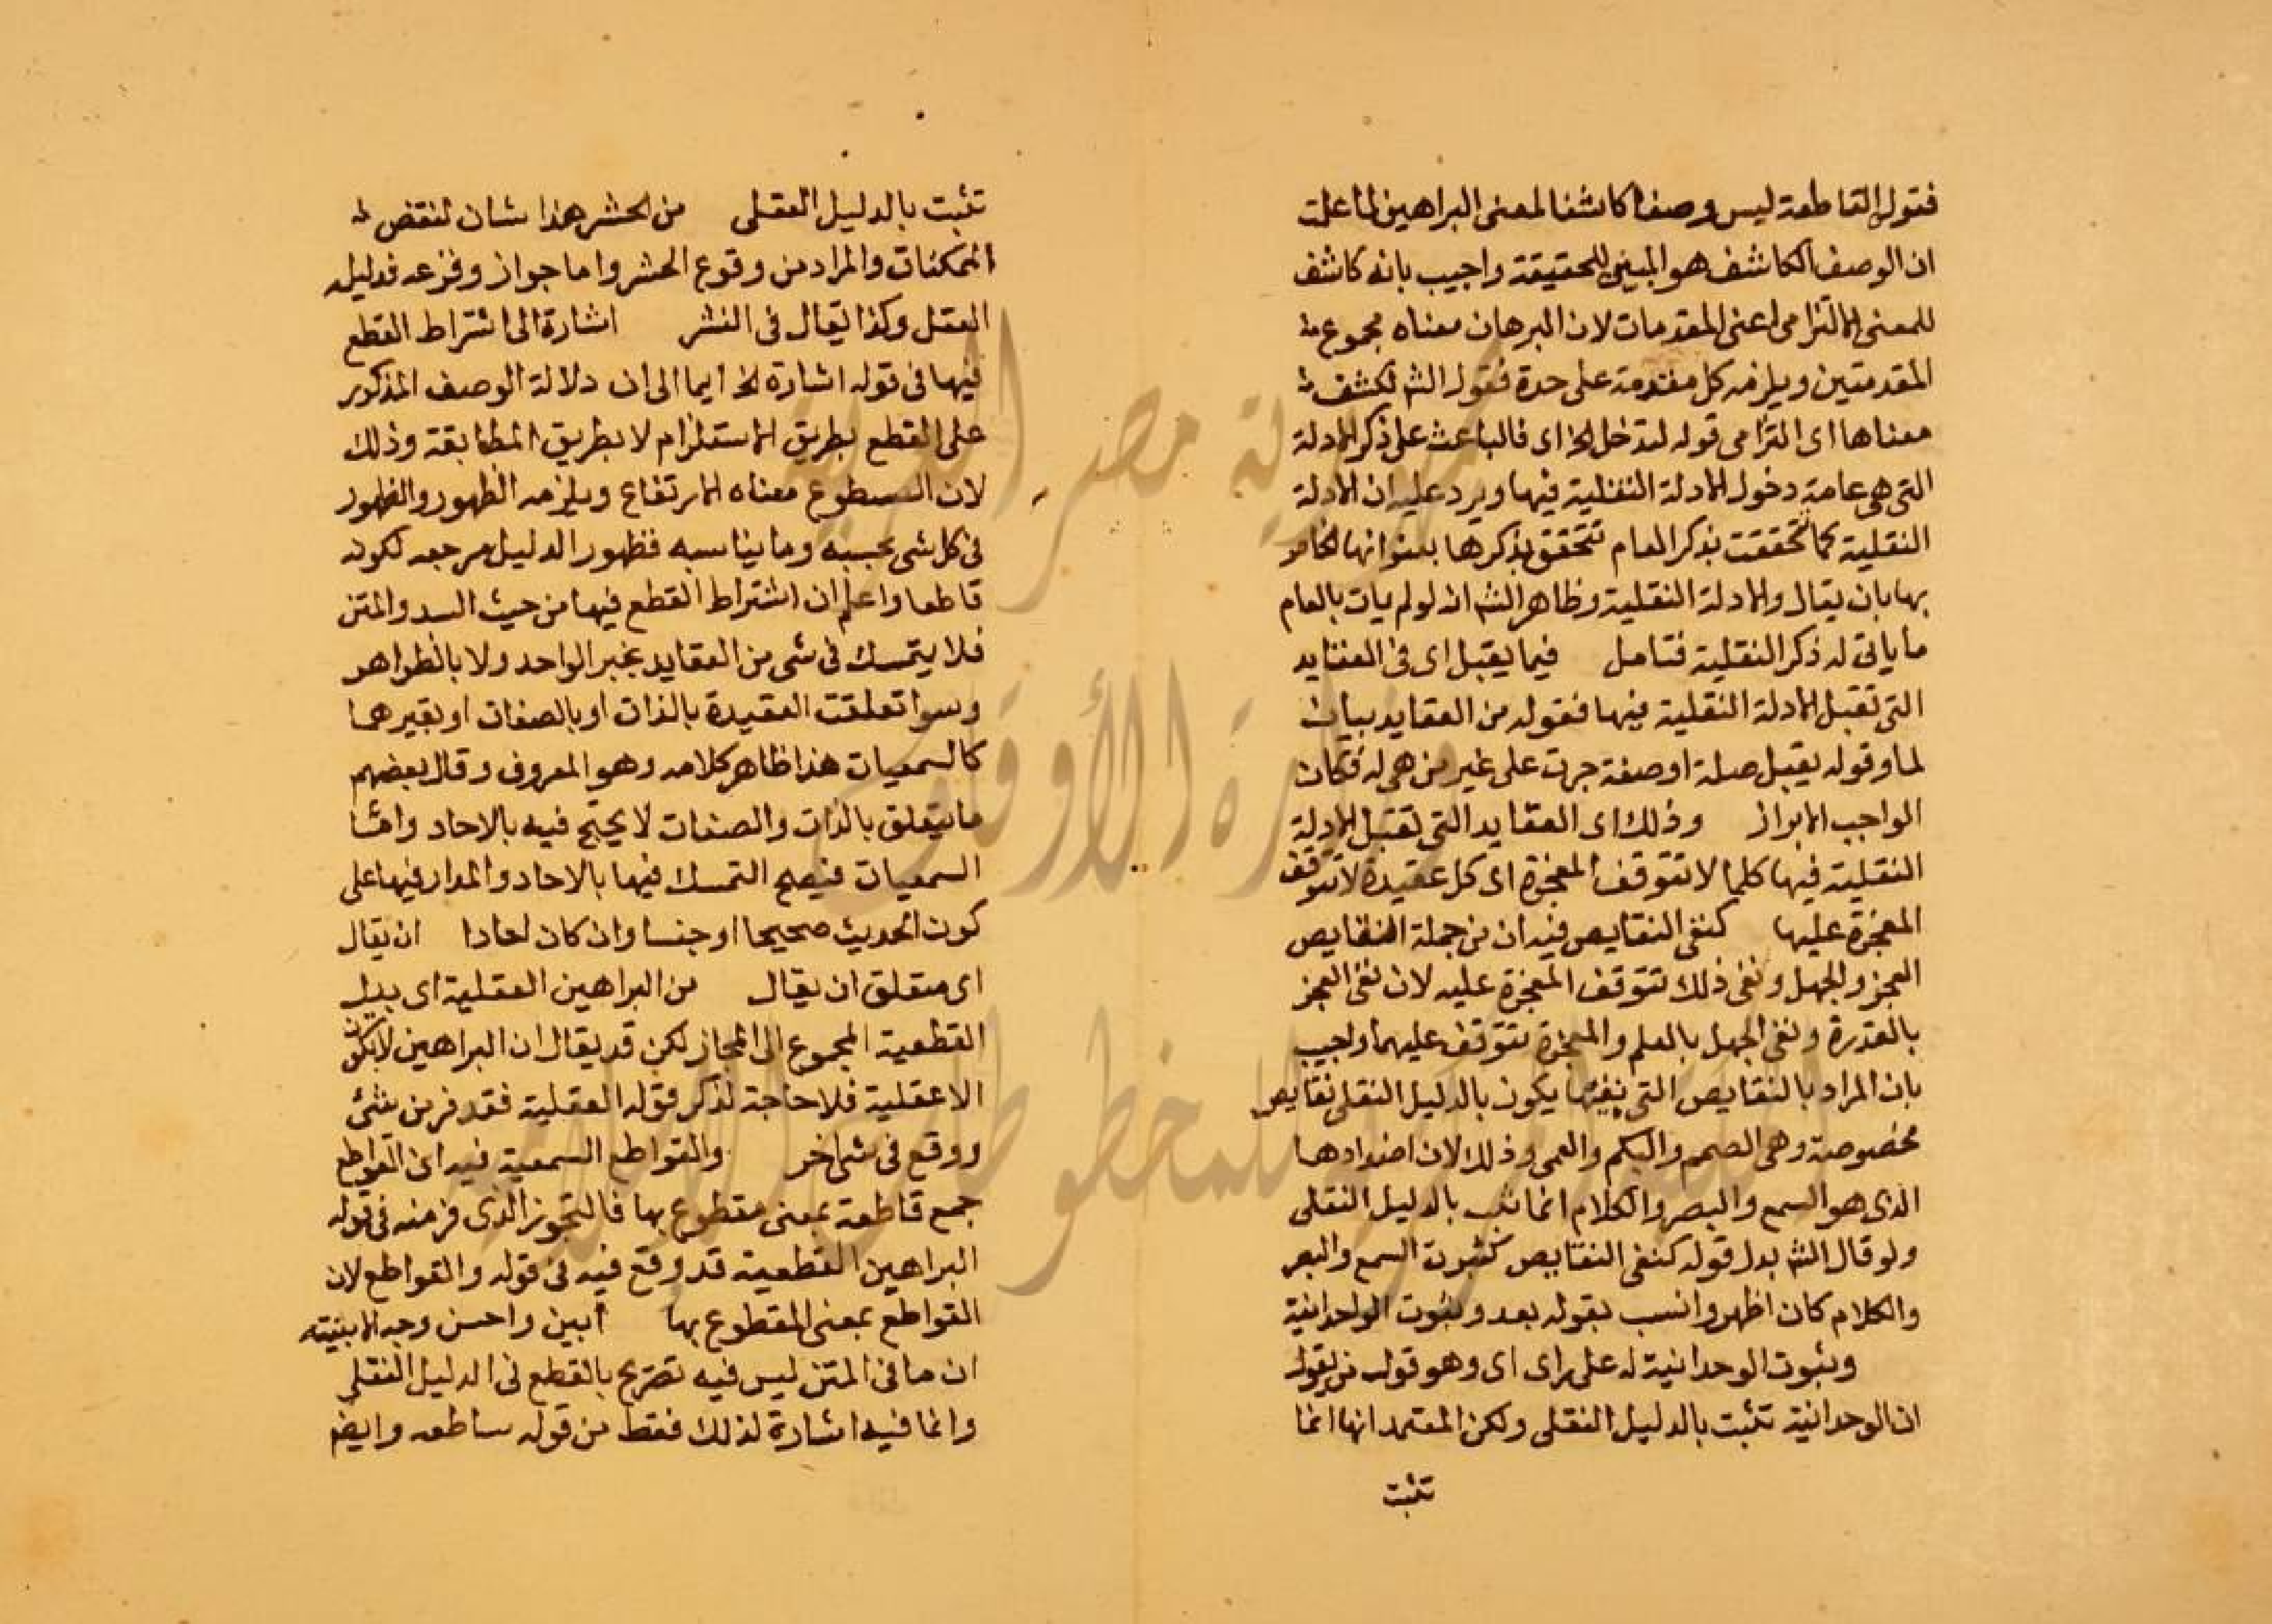 فقوله القاطعة ليس وصفا كاشفا لمعنى البراهين لما علمت
ان الوصف الكاشف هو المبين للحقيقة واجيب بانه كاشف
للمعنى الالتزامى اعنى المقدمات لان البرهان معناه مجموع
المقدمتين ويلزمه كل مقدمة على حدة فقول الشـ تكشف
معناها اى التزامى قوله لتدخل الخ اى فالباعث على ذكر الادلة
التى هى عامة دخول الادلة النقلية فيها ويرد عليه ان الادلة
النقلية كما تحققت بذكر العام تتحقق بذكرها بعنوانها الخاص
بها بان يقال والادلة النقلية وظاهر الشـ انه لو لم يات بالعام
ما ياتى له ذكر النقلية فتامل فيما يقبل اى فى العقايد
التى تقبل الادلة النقلية فيها فقوله من العقايد بيان
لما وقوله يقبل صلة او صفة جرت على غير من هى له فكان
الواجب الابراز وذلك اى العقايد التى تقبل الادلة
النقلية فيها كلما لا تتوقف المعجزة اى كل عقيدة لا تتوقف
المعجزة عليها كنفى النقايص فيه ان من جملة النقايص
العجز والجهل ونفى ذلك تتوقف المعجزة عليه لان نفى العجز
بالقدرة ونفى الجهل بالعلم والمعجزة تتوقف عليهما واجيب
بان المراد بالنقايص التى نفيها يكون بالدليل النقلى نقايص
مخصوصة وهى الصمم والبكم والعمى وذلك لان اضدادها
الذى هو السمع والبصر والكلام انما ثبت بالدليل النقلى
ولو قال الشـ بدل قوله كنفى النقايص كثبوت السمع والبصر
والكلام كان اظهر وانسب بقوله بعد وثبوت الوحدانية
وثبوت الوحدانية له على راى اى وهو قول من يقول
ان الوحدانية تثبت بالدليل النقلى ولكن المعتمد انها انما
تثبت
تثبت بالدليل العقلى من الحشر هذا شان لنقض
الممكنات والمراد من وقوع الحشر واما جواز وقوعه فدليله
العقل وكذا يقال فى النشر اشارة الى اشتراط القطع
فيها فى قوله اشارة الخ ايما الى ان دلالة الوصف المذكور
على القطع بطريق الاستلزام لا بطريق المطابقة وذلك
لان السطوع معناه الارتفاع ويلزمه الظهور والظهور
فى كل شى بحسبه وما يناسبه فظهور الدليل مرجعه لكونه
قاطعا واعلم ان اشتراط القطع فيها من حيث السند والمتن
فلا يتمسك فى شى من العقايد بخبر الواحد ولا بالظواهر
وسوا تعلقت العقيدة بالذات او بالصفات او بغيرهما
كالسمعيات هذا ظاهر كلامه وهو المعروف وقال بعضهم
ما يتعلق بالذات والصفات لا يحتج فيه بالاحاد واما
السمعيات فيصح التمسك فيها بالاحاد والمدار فيها على
كون الحديث صحيحا او حسنا وان كان احادا ان يقال
اى متعلق ان يقال من البراهين العقلية اى بدل
القطعية المجموع الى المجاز لكن قد يقال ان البراهين لا تكون
الا عقلية فلا حاجة لذكر قوله العقلية فقد فر من شئ
ووقع فى شى اخر والقواطع السمعية فيه ان القواطع
جمع قاطعة بمعنى مقطوع بها فالتجوز الذى فر منه فى قوله
البراهين القطعية قد وقع فيه فى قوله والقواطع لان
القواطع بمعنى المقطوع بها ابين واحسن وجه الابينية
ان ما فى المتن ليس فيه تصريح بالقطع فى الدليل النقلى
وانما فيه اشارة لذلك فقط من قوله ساطعه وايضا